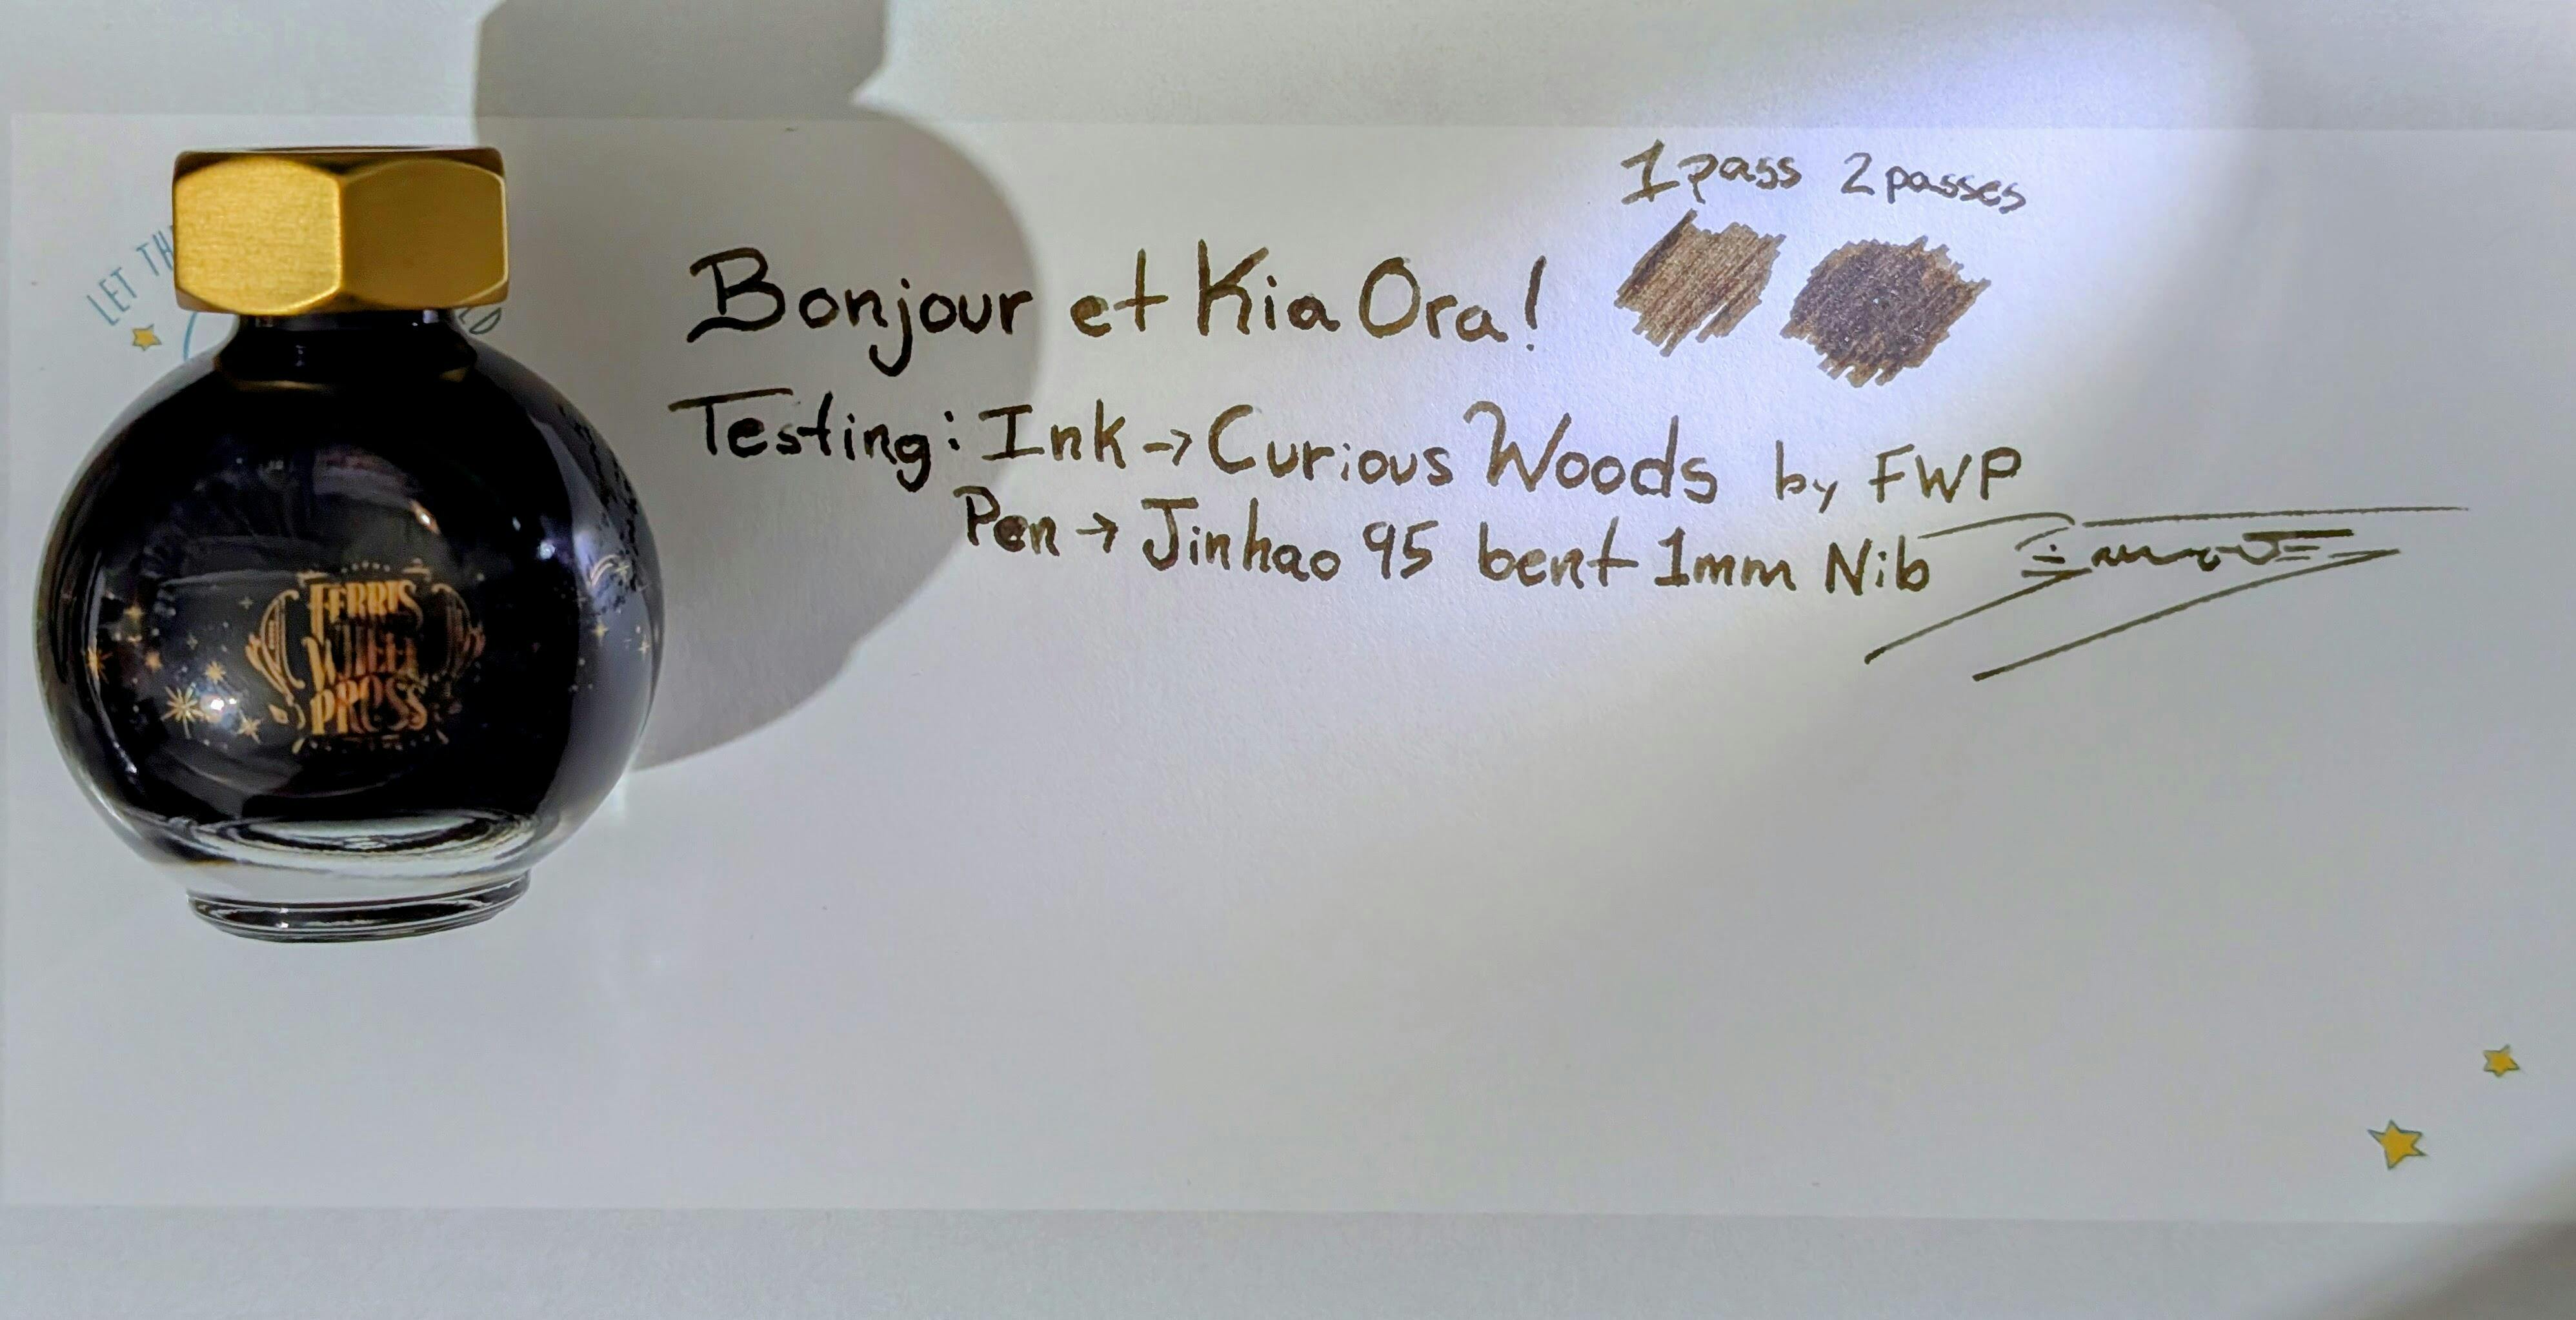 LET TH
FERRIS
WHEEL
PRESS
1 pass 2 passes
Bonjour et Kia Ora!
Testing: Ink → Curious Woods by FWP
Pen → Jinhao 95 bent 1mm Nib